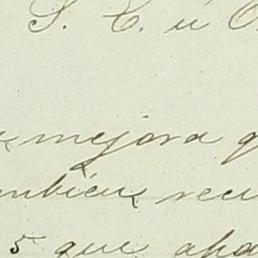 S. C. ú O
mejora q
ambien, reci
5 que apa